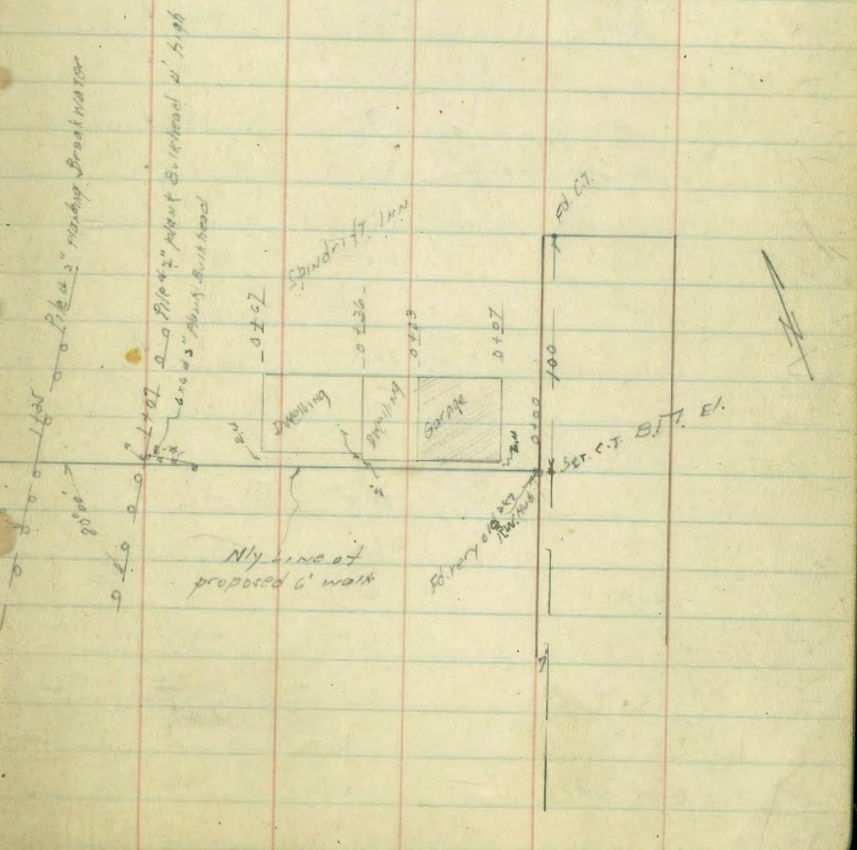 Pile & 2" planking Break Water
1+25
Pile & 2" plank Bulkhead 4' high
6x6 & 3" Plank Bulkhead
1+07
80°00'
Spindrift Inn
0+67
0+36
0+23
0+07
0+00
Dwelling
Dwelling
Garage
1'
2'
Fd. C.T.
100
Set. C.T. B.M. El.
Fd. very old
Hub
Nly Line of
proposed 6' walk